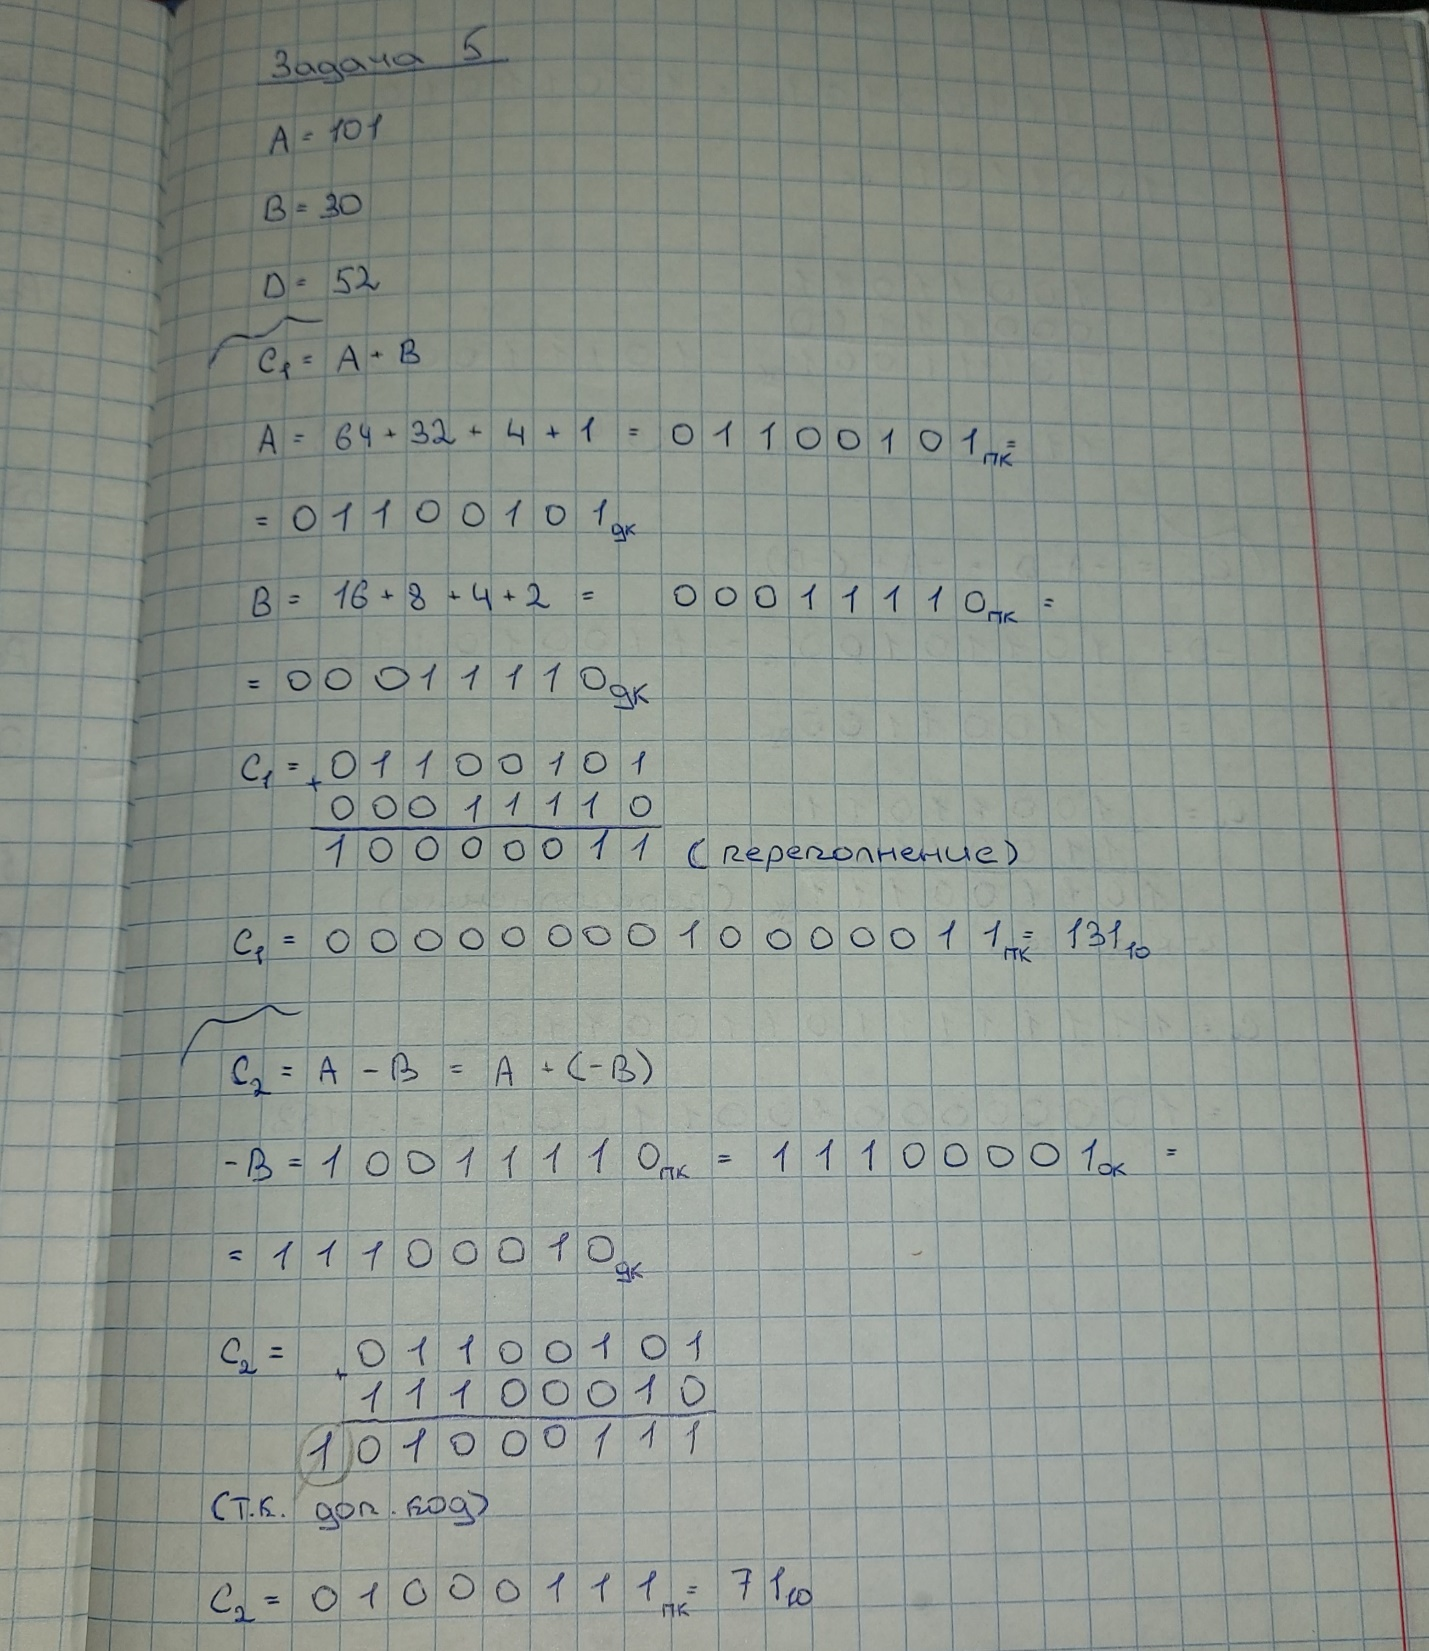 Задача 5
A = 101
B = 30
D = 52
C₁ = A + B
A = 64 + 32 + 4 + 1 = 01100101ПК =
= 01100101ДК
B = 16 + 8 + 4 + 2 = 00011110ПК =
= 00011110ДК
C₁ = + 01100101
00011110
10000011 (переполнение)
C₁ = 0000000010000011ПК = 131₁₀
C₂ = A - B = A + (-B)
-B = 10011110ПК = 11100001ОК =
= 11100010ДК
C₂ = + 01100101
11100010
101000111
(т.к. доп. код)
C₂ = 01000111ПК = 71₁₀